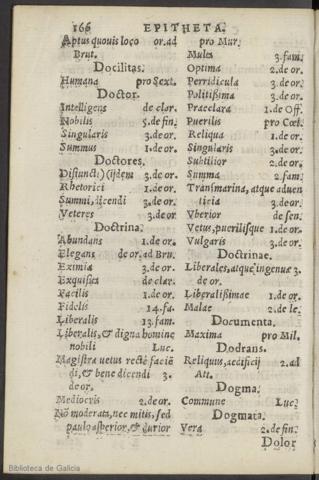 166 EPITHETA.
Aptus quouis loco or. ad
Brut.
Docilitas.
Humana pro Sext.
Doctor.
Intelligens de clar.
Nobilis 5. de fin.
Singularis 3. de or.
Summus 1. de or.
Doctores.
Disiuncti) (ijdem 3. de or.
Rhetorici 1. de or.
Summi, dicendi 3. de or.
Veteres 3. de or.
Doctrina.
Abundans 1. de or.
Elegans de or. ad Bru.
Eximia 3. de or.
Exquisita de clar.
Facilis 1. de or.
Fidelis 14. fa.
Liberalis 13. fam.
Liberalis, & digna homine
nobili Luc.
Magistra uetus recte faciē
di, & bene dicendi 3.
de or.
Mediocris 2. de or.
Nō moderata, nec mitis, sed
paulo asperior, & durior
pro Mur.
Multa 3. fam.
Optima 2. de or.
Perridicula 3. de or.
Politissima 3. de or.
Praeclara 1. de Off.
Puerilis pro Cœl.
Reliqua 1. de or.
Singularis 3. de or.
Subtilior 2. de or.
Summa 2. fam.
Transmarina, atque aduen
ticia 3. de or.
Vberior de sen.
Vetus, puerilisque 1. de or.
Vulgaris 3. de or.
Doctrinae.
Liberales, atque ingenuæ 3.
de or.
Liberalissimae 1. de or.
Malae 2. de le.
Documenta.
Maxima pro Mil.
Dodrans.
Reliquus, aedificij 2. ad
Att.
Dogma.
Commune Luc.
Dogmata.
Vera 2. de fin.
Dolor
Biblioteca de Galicia